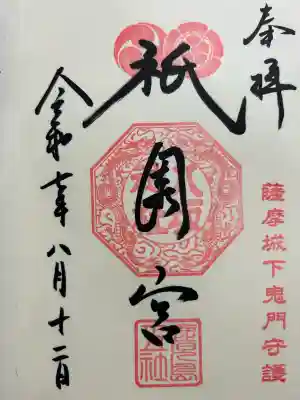 奉拝
薩摩城下鬼門守護
祇園宮
令和七年八月十二日